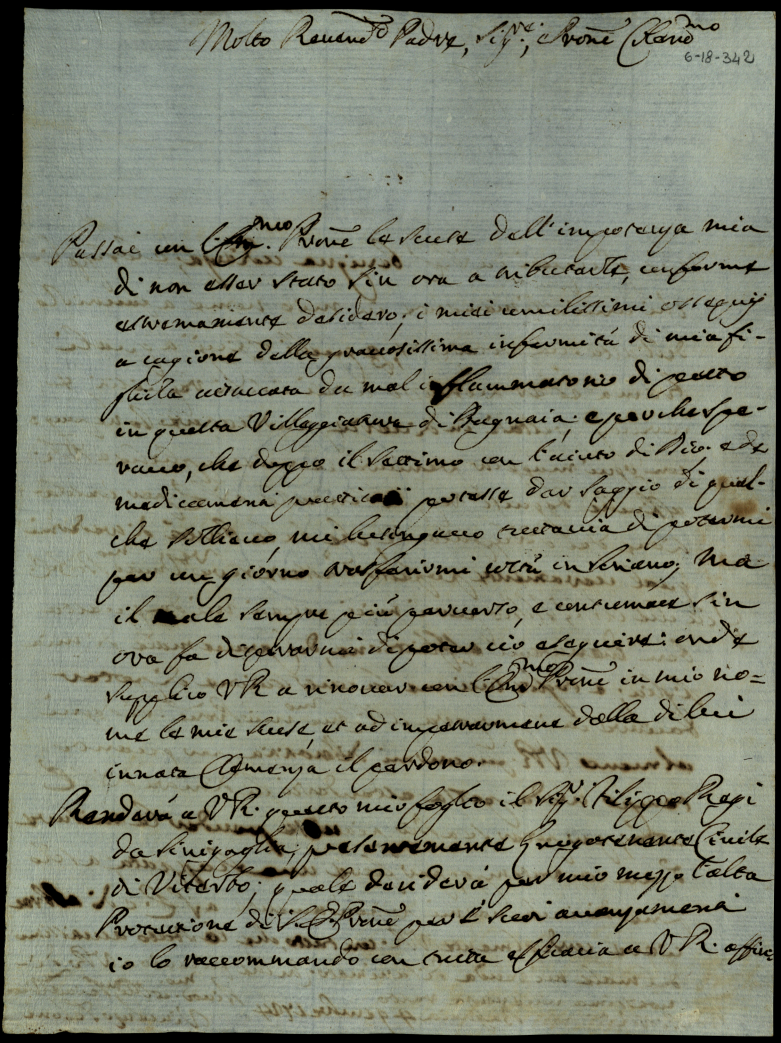 Molto Reuend.o Padre, Sig.re, e Prone Colend.mo
6-18-342
Passai con l'Em.mo Prone le scuse dell'impotenza mia
di non esser stato sin ora a tributarle, conforme
estremamente desidero, i miei umilissimi ossequij
a cagione della gravosissima infermità di mia fi-
glia attaccata da mal inflammatorio di petto
in questa Villeggiatura di Bagnaia; e perche spe-
ravo, che doppo il settimo con l'aiuto di Dio, e de
medicamenti potesse dar saggio di qual-
che sollievo mi lusingavo tuttavia di potermi
per un giorno trasferirmi costì in Soriano; ma
il male sempre più perverso, e contumace sin
ora fa disperarmi di poter ciò eseguire: onde
supplico VR a rinovar con l'Em.mo Prone in mio no=
me le mie scuse, et ad impetrarmene dalla di lui
innata Clemenza il perdono.
Renderà a VR. questo mio foglio il Sig.r Filippo
da Sinigaglia, presentemente Luogotenente Civile
di Viterbo; quale desiderà per mio mezzo l'alta
Protezione di S.E. Prone per i suoi avanzamenti
io lo raccommando con tutta efficacia a VR. affin=